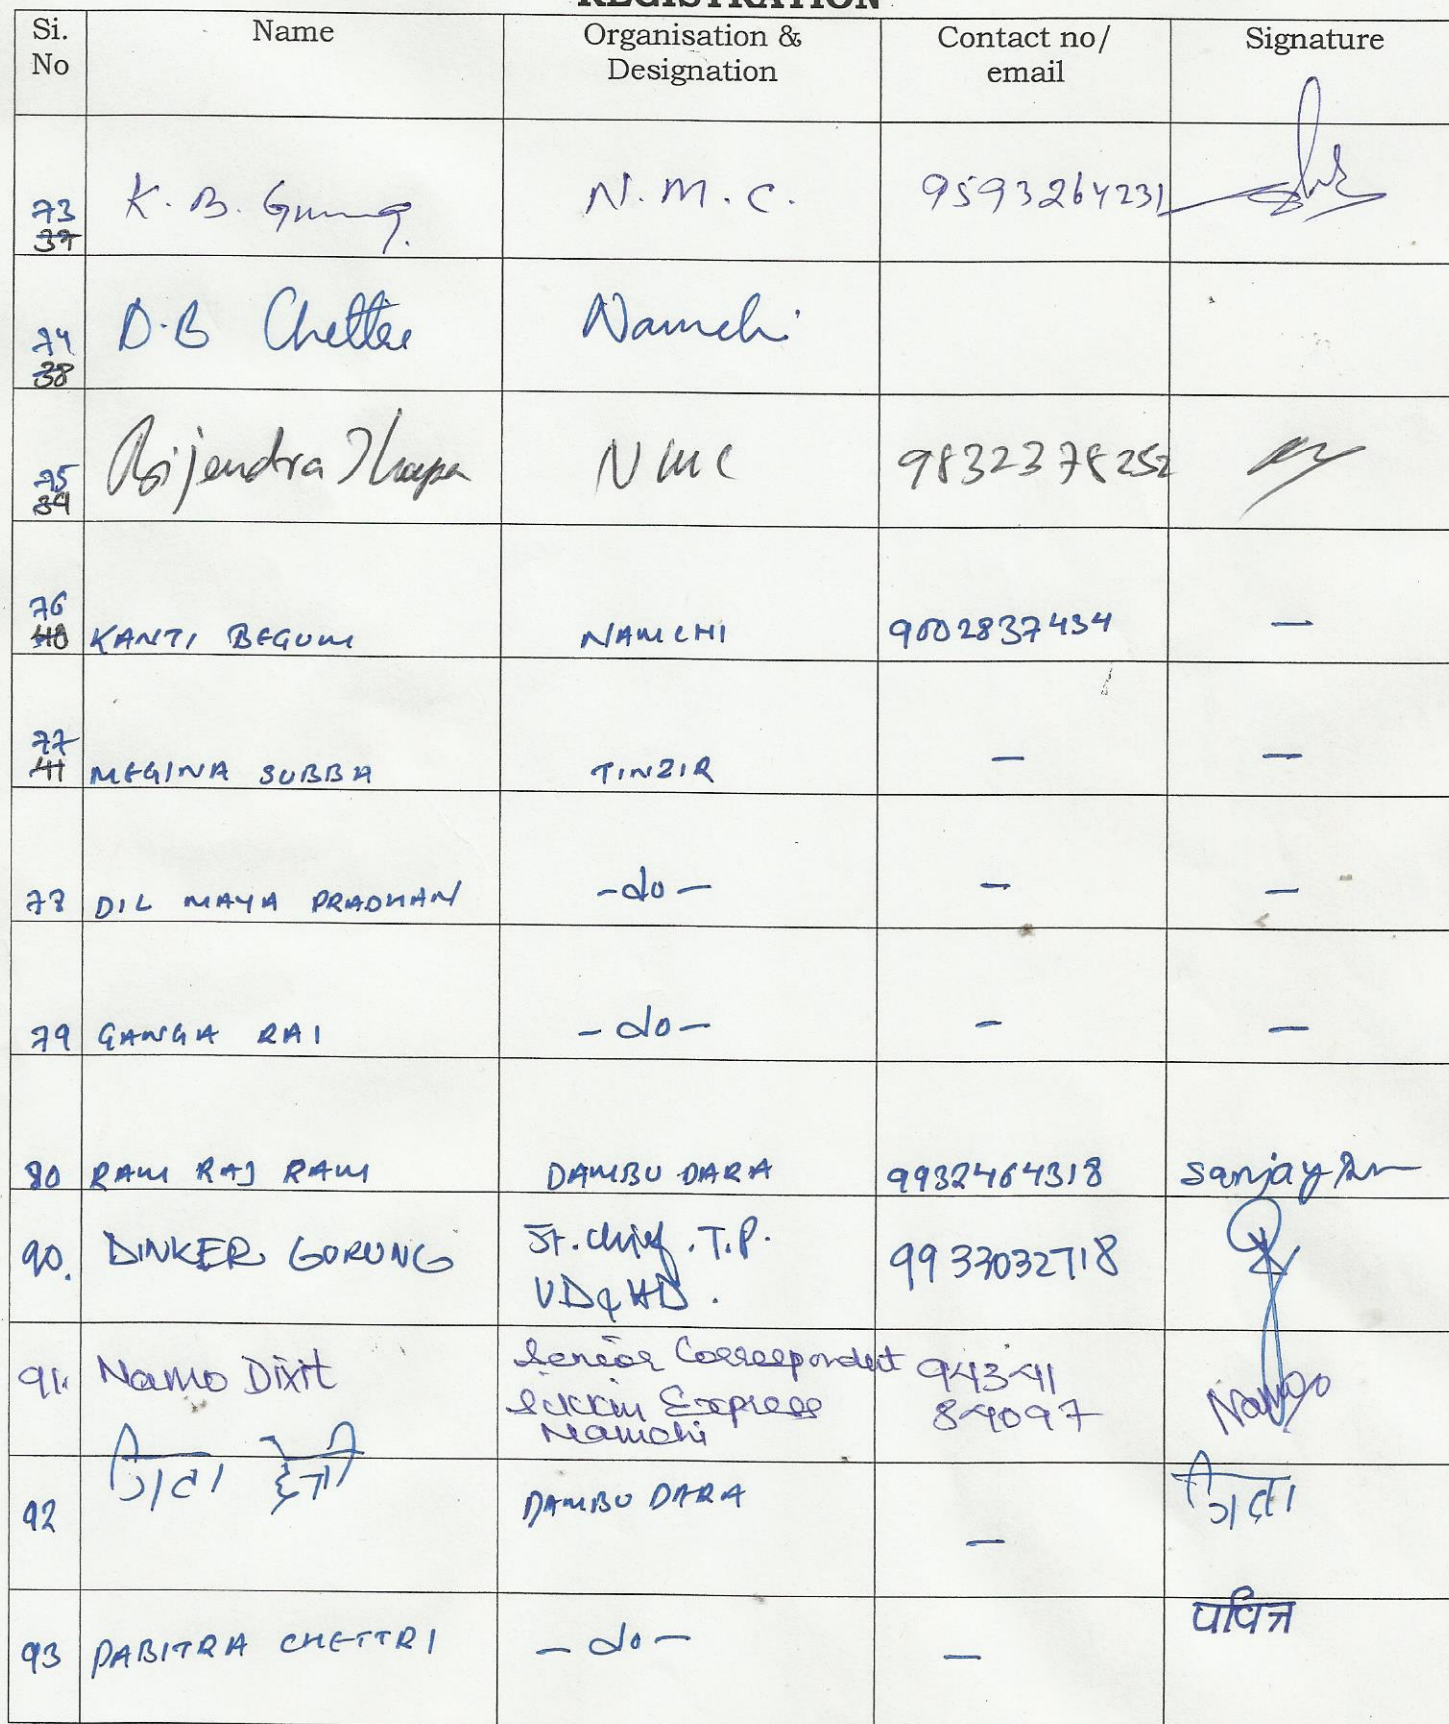 REGISTRATION
Si. No Name Organisation & Designation Contact no/ email Signature
73 37 K. B. Gurung. N. M. C. 9593264231
74 38 D.B Chettri Namchi
75 39 Bijendra Thapa NMC 9832378252
76 40 KANTI BEGUM NAMCHI 9002837434 —
77 41 MEGINA SUBBA TINZIR — —
78 DIL MAYA PRADHAN -do- — —
79 GANGA RAI -do- — —
80 RAM RAJ RAM DAMBU DARA 9932464318 Sanjay
90. DINKER GURUNG Jt. Chief. T.P. 9933032718
UD&HD.
91. Namo Dixit Senior Correspondent 943-41
Sikkim Express 8-4097 Namo
Namchi
92 DAMBU DARA —
93 PABITRA CHETTRI -do- — पवित्र